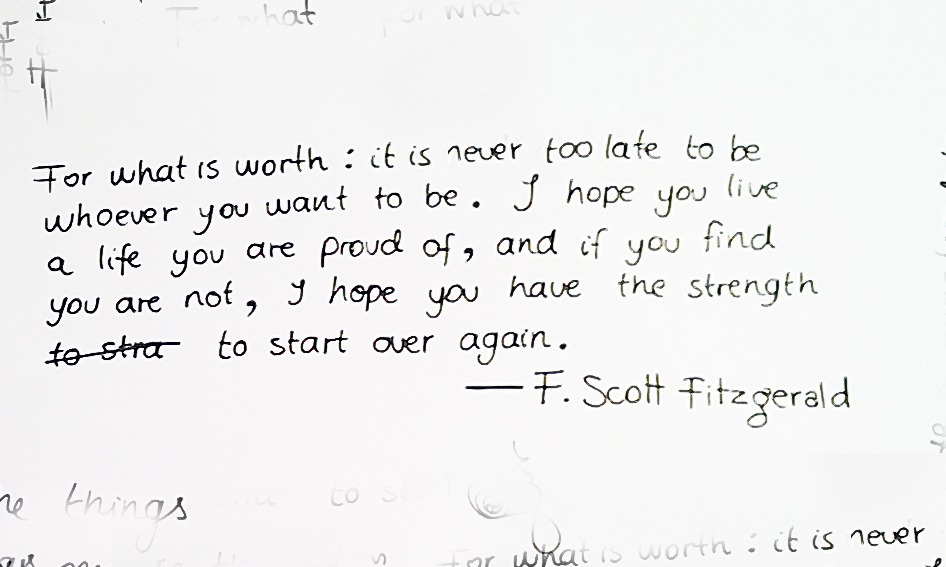 For what
For what
For what is worth : it is never too late to be
whoever you want to be. I hope you live
a life you are proud of, and if you find
you are not, I hope you have the strength
to stra to start over again.
— F. Scott Fitzgerald
things
to
For what is worth : it is never